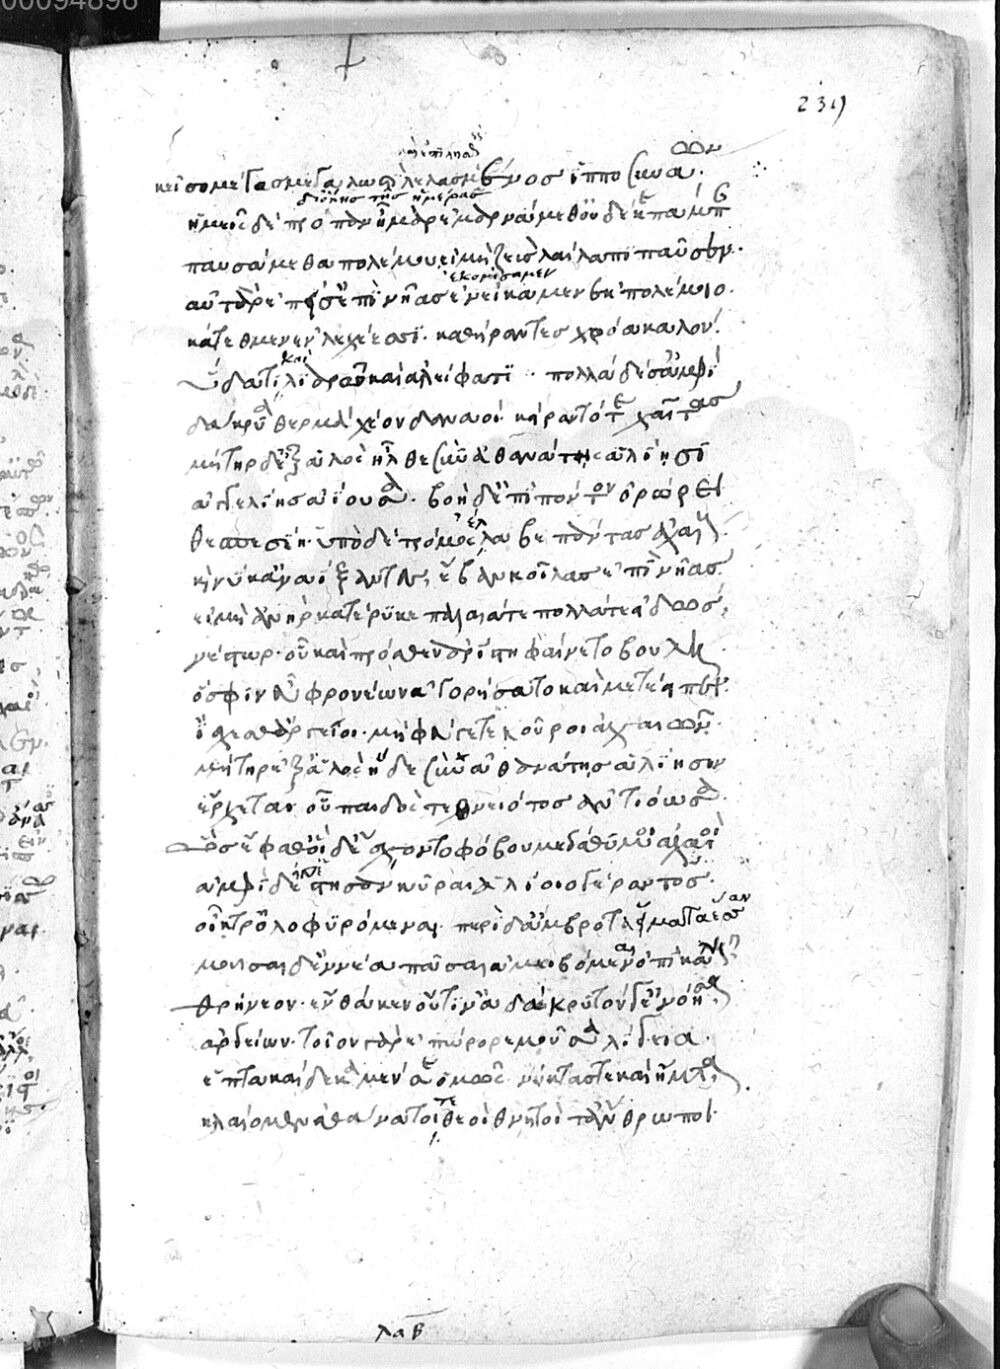 00094896
239
κεῖσο μέγας μεγαλωστὶ λελασμένος ἱπποσυνάων.
ἡμεῖς δὲ πρόπαν ἦμαρ ἐμαρνάμεθ' οὐδέ κε πάμπαν
διόλης τῆς ἡμέρας
παυσάμεθα πολέμου εἰ μὴ ζεὺς λαίλαπι παῦσεν.
ἐκομίσαμεν
αὐτὰρ ἐπεί σ' ἐπὶ νῆας ἐνείκαμεν ἐκ πολέμοιο.
κάτθεμεν ἐν λεχέεσσι. καθήραντες χρόα καλόν.
ὕδατί τε λιαρῷ καὶ ἀλείφατι. πολλὰ δέ σ' ἀμφὶ
δάκρυα θερμὰ χέον δαναοὶ κείραντό τε χαίτας
μήτηρ δ' ἐξ ἁλὸς ἦλθε σὺν ἀθανάτης ἁλίῃσι
ἀγγελίης ἀΐουσα. βοὴ δ' ἐπὶ πόντον ὀρώρει
θεσπεσίη. ὑπὸ δὲ τρόμος ἔλλαβε πάντας ἀχαιούς.
καί νύ κ' ἀναΐξαντες ἔβαν κοίλας ἐπὶ νῆας
εἰ μὴ ἀνὴρ κατέρυκε παλαιά τε πολλά τε εἰδώς,
νέστωρ. οὗ καὶ πρόσθεν ἀρίστη φαίνετο βουλή.
ὅ σφιν ἐϋφρονέων ἀγορήσατο καὶ μετέειπεν.
ἴσχεσθ' ἀργεῖοι. μὴ φεύγετε κοῦροι ἀχαιῶν.
μήτηρ ἐξ ἁλὸς ἥδε σὺν ἀθανάτης ἁλίῃσιν
ἔρχεται οὗ παιδὸς τεθνειότος ἀντιόωσα.
ὣς ἔφαθ' οἱ δ' ἔσχοντο φόβου μεγάθυμοι ἀχαιοὶ
ἀμφὶ δέ σ' ἔστησαν κοῦραι ἁλίοιο γέροντος.
οἴκτρ' ὀλοφυρόμεναι. περὶ δ' ἄμβροτα εἵματα ἕσσαν
μοῦσαι δ' ἐννέα πᾶσαι ἀμειβόμεναι ὀπὶ καλῇ
θρήνεον. ἔνθά κεν οὔτιν' ἀδάκρυτόν γ' ἐνόησας
ἀργείων. τοῖον γὰρ ἐπώρορε μοῦσα λίγεια.
ἑπτὰ καὶ δέκα μέν σε ὁμῶς νύκτας τε καὶ ἦμαρ
κλαίομεν ἀθάνατοί τε θεοὶ θνητοί τ' ἄνθρωποι.